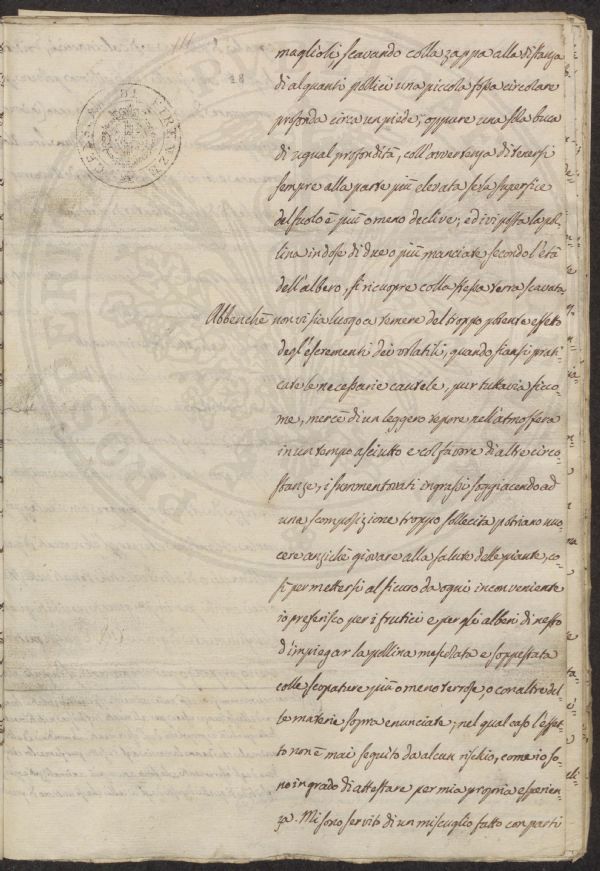 28
maglioli, scavando colla zappa alla distanza
di alquanti pollici una piccola fossa circolare
profonda circa un piede; oppure una sola buca
di ugual profondità, coll'avvertenza di tenersi
sempre alla parte più elevata se la superficie
del suolo è più o meno declive; ed ivi posta la pol-
lina in dose di due o più manciate secondo l'età
dell'albero, si ricuopre colla stessa terra scavata.
Abbenchè non vi sia luogo a temere del troppo potente effetto
degl'escrementi dei volatili, quando siansi prati-
cate le necessarie cautele, pur tuttavia sicco-
me, mercè di un leggero vapore nell'atmosfera
in un tempo asciutto e col favore di altre circo-
stanze, i summentovati ingrassi soggiacendo ad
una scomposizione troppo sollecita potriano nuo-
cere anzichè giovare alla salute delle piante, co-
sì per mettersi al sicuro da ogni inconveniente
io preferisco per i frutici e per gli alberi di nesto
d'impiegar la pollina mescolata e soppestata
colle scopature più o meno terrose, o con altre del-
le materie sopra enunciate; nel qual caso l'effet-
to non è mai seguito da alcun rischio, come io so-
no in grado di attestare per mia propria esperien-
za. Mi sono servito di un miscuglio fatto con parti